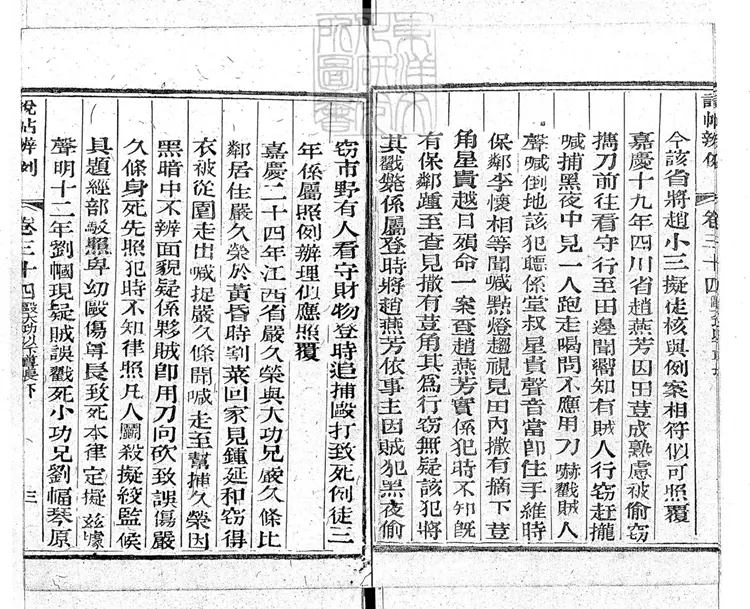 今該省將趙小三擬徒核與例案相符似可照覆
嘉慶十九年四川省趙燕芳因田荳成熟慮被偷竊
攜刀前往看守行至田邊聞嚮知有賊人行竊赶攏
喊捕黑夜中見一人跑走喝問不應用刀嚇戳賊人
聲喊倒地該犯聽係堂叔星貴聲音當即住手維時
保鄰李懷相等聞喊點燈趨視見田內撒有摘下荳
角星貴越日殞命一案查趙燕芳實係犯時不知旣
有保鄰踵至查見撒有荳角其為行竊無疑該犯將
其戳斃係屬登時將趙燕芳依事主因賊犯黑夜偷
卷三十四
竊市野有人看守財物登時追捕毆打致死例徒三
年係屬照例辦理似應照覆
嘉慶二十四年江西省嚴久榮與大功兄嚴久條比
鄰居住嚴久榮於黃昏時割菜回家見鍾延和竊得
衣被從園走出喊捉嚴久條開喊走至幫捕久榮因
黑暗中不辨面貌疑係夥賊卽用刀向砍致誤傷嚴
久條身死先照犯時不知律照凡人鬬殺擬絞監候
具題經部駁照卑幼毆傷尊長致死本律定擬茲據
聲明十二年劉幗現疑賊誤戳死小功兄劉幅琴原
說帖辨例
卷三十四
毆大功以下尊長下
三